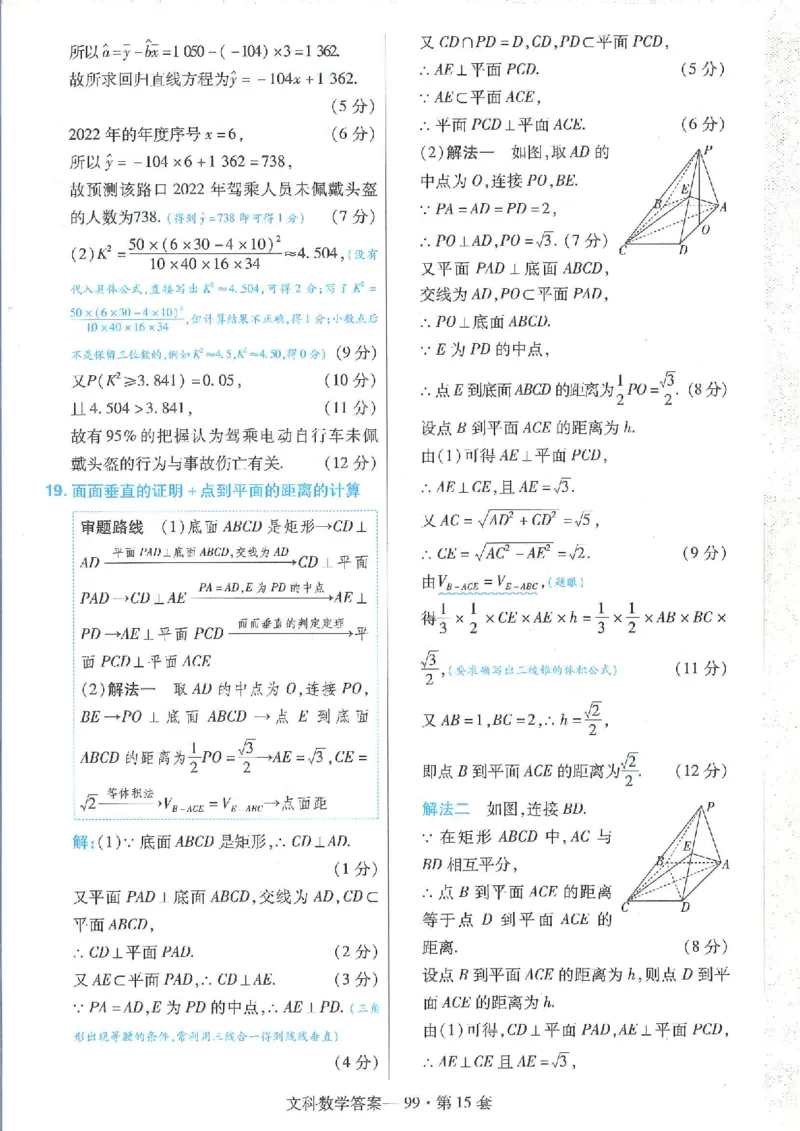 所以â=ȳ-b̂x̄=1 050-(-104)×3=1 362.
故所求回归直线方程为ŷ=-104x+1 362.
(5分)
2022年的年度序号x=6, (6分)
所以ŷ=-104×6+1 362=738,
故预测该路口2022年驾乘人员未佩戴头盔
的人数为738.(得到ŷ=738即可得1分) (7分)
(2)K²=50×(6×30-4×10)²/10×40×16×34≈4.504,(没有
代入具体公式,直接写出K²≈4.504,可得2分;写了K²=
50×(6×30-4×10)²/10×40×16×34,但计算结果不正确,得1分;小数点后
不是保留三位数的,例如K²≈4.5,K²≈4.50,得0分) (9分)
又P(K²≥3.841)=0.05, (10分)
且4.504>3.841, (11分)
故有95%的把握认为驾乘电动自行车未佩
戴头盔的行为与事故伤亡有关. (12分)
19.面面垂直的证明+点到平面的距离的计算
审题路线 (1)底面ABCD是矩形→CD⊥
AD 平面PAD⊥底面ABCD,交线为AD→CD⊥平面
PAD→CD⊥AE PA=AD,E为PD的中点→AE⊥
PD→AE⊥平面PCD 面面垂直的判定定理→平
面PCD⊥平面ACE
(2)解法一 取AD的中点为O,连接PO,
BE→PO⊥底面ABCD→点E到底面
ABCD的距离为1/2PO=√3/2→AE=√3,CE=
√2 等体积法→V_{B-ACE}=V_{E-ABC}→点面距
解:(1)∵底面ABCD是矩形,∴CD⊥AD.
(1分)
又平面PAD⊥底面ABCD,交线为AD,CD⊂
平面ABCD,
∴CD⊥平面PAD. (2分)
又AE⊂平面PAD,∴CD⊥AE. (3分)
∵PA=AD,E为PD的中点,∴AE⊥PD.(三角
形出现等腰的条件,常利用三线合一得到线线垂直)
(4分)
又CD∩PD=D,CD,PD⊂平面PCD,
∴AE⊥平面PCD. (5分)
∵AE⊂平面ACE,
∴平面PCD⊥平面ACE. (6分)
(2)解法一 如图,取AD的
中点为O,连接PO,BE.
∵PA=AD=PD=2,
∴PO⊥AD,PO=√3.(7分)
又平面PAD⊥底面ABCD,
交线为AD,PO⊂平面PAD,
∴PO⊥底面ABCD.
P
E
B
A
O
C
D
∵E为PD的中点,
∴点E到底面ABCD的距离为1/2PO=√3/2.(8分)
设点B到平面ACE的距离为h.
由(1)可得AE⊥平面PCD,
∴AE⊥CE,且AE=√3.
又AC=√(AD²+CD²)=√5,
∴CE=√(AC²-AE²)=√2. (9分)
由V_{B-ACE}=V_{E-ABC},(题眼)
得1/3×1/2×CE×AE×h=1/3×1/2×AB×BC×
√3/2,(要准确写出三棱锥的体积公式) (11分)
又AB=1,BC=2,∴h=√2/2,
即点B到平面ACE的距离为√2/2. (12分)
解法二 如图,连接BD.
∵在矩形ABCD中,AC与
BD相互平分,
∴点B到平面ACE的距离
等于点D到平面ACE的
距离. (8分)
P
E
B
A
C
D
设点B到平面ACE的距离为h,则点D到平
面ACE的距离为h.
由(1)可得,CD⊥平面PAD,AE⊥平面PCD,
∴AE⊥CE且AE=√3,
文科数学答案—99·第15套